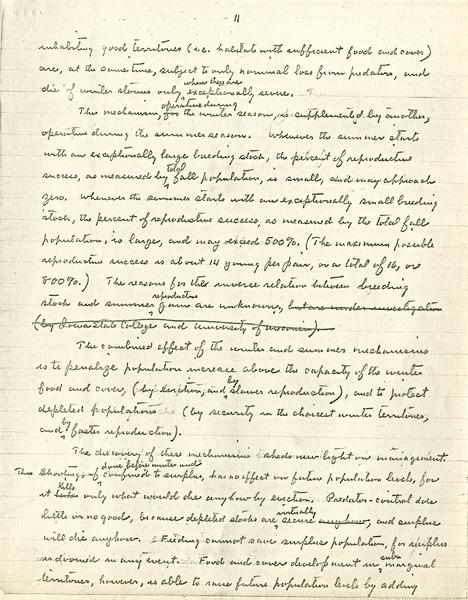 11
inhabiting good territories (i.e. habitats with sufficient food and cover)
are, at the same time, subject to only nominal loss from predators, and
die of winter storms only when these are exceptionally severe.
This mechanism, operative during the winter season, is supplemented by another,
operative during the summer season. Whenever the summer starts
with an exceptionally large breeding stock, the percent of reproductive
success, as measured by total fall population, is small, and may approach
zero. Whenever the summer starts with an exceptionally small breeding
stock, the percent of reproductive success, as measured by the total fall
population, is large, and may exceed 500%. (The maximum possible
reproductive success is about 14 young per pair, or a total of 16, or
800%.) The reasons for this inverse relation between breeding
stock and summer reproductive gain are unknown, but are under investigation
(by Iowa State College and University of Wisconsin).
The combined effect of the winter and summer mechanisms
is to penalize population increase above the capacity of the winter
food and cover, (by eviction, and by slower reproduction), and to protect
depleted populations (by security in the choicest winter territories,
and by faster reproduction).
The discovery of these mechanisms sheds new light on management.
Thus shooting, if done before winter and confined to surplus, has no effect on future population levels, for
it kills only what would die anyhow by eviction. Predator-control does
little or no good, because depleted stocks are virtually secure anyhow, and surplus
will die anyhow. Feeding cannot save surplus population, for surplus
is doomed in any event. Food and cover development in sub-marginal
territories, however, is able to raise future population levels by adding